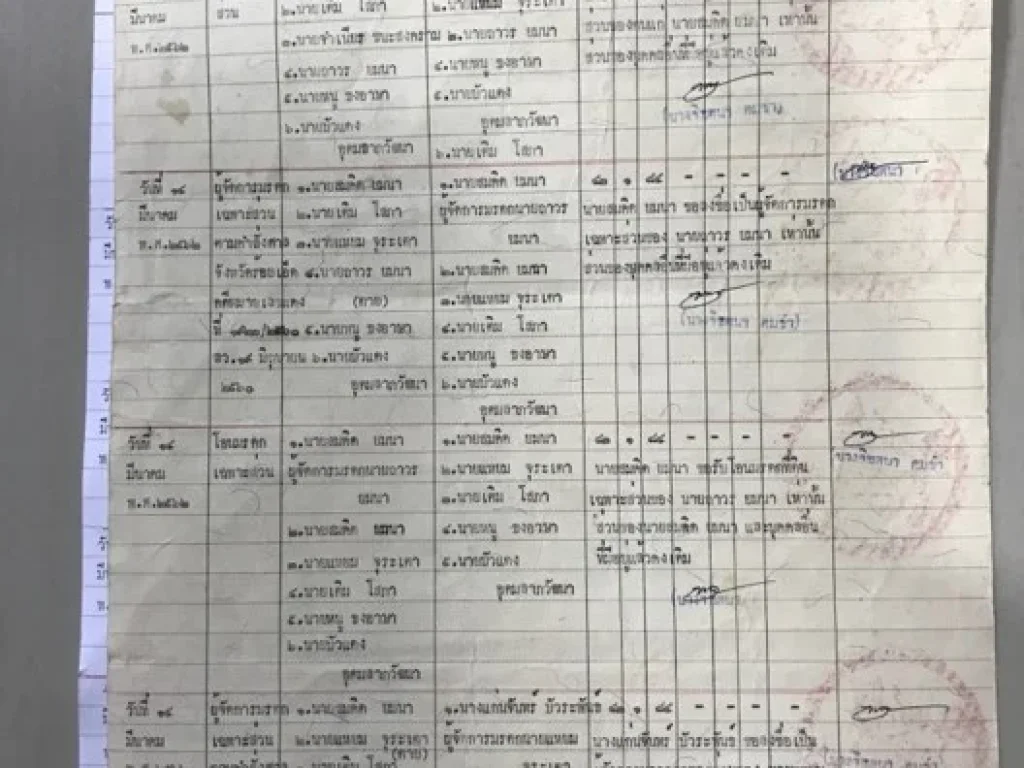 มีนาคม ส่วน ๒.นายเติม โสภา ๒.นายแหยม จุระเดา ส่วนของตนแก่ นายสมคิด ยมนา เท่านั้น
พ.ศ.๒๕๖๒ ๓.นายจำเนียร ชนะสงคราม ๓.นายถาวร ยมนา ส่วนของบุคคลอื่นที่มีอยู่แล้วคงเดิม
๔.นายถาวร ยมนา ๔.นายหนู ธงอาษา
๕.นายหนู ธงอาษา ๕.นายบัวแดง
๖.นายบัวแดง อุดมลาภวัฒนา
อุดมลาภวัฒนา ๖.นายเติม โสภา
วันที่ ๑๔ ผู้จัดการมรดก ๑.นายสมคิด ยมนา ๑.นายสมคิด ยมนา ๘๓ ๑ ๔๔ - - - -
มีนาคม เฉพาะส่วน ๒.นายเติม โสภา ผู้จัดการมรดกนายถาวร นายสมคิด ยมนา ขอลงชื่อเป็นผู้จัดการมรดก
พ.ศ.๒๕๖๒ ตามคำสั่งศาล ๓.นายแหยม จุระเดา ยมนา เฉพาะส่วนของ นายถาวร ยมนา เท่านั้น
จังหวัดร้อยเอ็ด ๔.นายถาวร ยมนา ๒.นายสมคิด ยมนา ส่วนของบุคคลอื่นที่มีอยู่แล้วคงเดิม
คดีหมายเลขแดง (ตาย) ๓.นายแหยม จุระเดา
ที่ ๕.นายหนู ธงอาษา ๔.นายเติม โสภา
ลว.๑๙ มิถุนายน ๖.นายบัวแดง ๕.นายหนู ธงอาษา
๒๕๖๑ อุดมลาภวัฒนา ๖.นายบัวแดง
อุดมลาภวัฒนา
วันที่ ๑๔ โอนมรดก ๑.นายสมคิด ยมนา ๑.นายสมคิด ยมนา ๘๓ ๑ ๔๔ - - - -
มีนาคม เฉพาะส่วน ผู้จัดการมรดกนายถาวร ๒.นายแหยม จุระเดา นายสมคิด ยมนา ขอรับโอนมรดกที่ดิน
พ.ศ.๒๕๖๒ ยมนา ๓.นายเติม โสภา เฉพาะส่วนของ นายถาวร ยมนา เท่านั้น
๒.นายสมคิด ยมนา ๔.นายหนู ธงอาษา ส่วนของนายสมคิด ยมนา และบุคคลอื่น
๓.นายแหยม จุระเดา ๕.นายบัวแดง ที่มีอยู่แล้วคงเดิม
๔.นายเติม โสภา อุดมลาภวัฒนา
๕.นายหนู ธงอาษา
๖.นายบัวแดง
อุดมลาภวัฒนา
วันที่ ๑๔ ผู้จัดการมรดก ๑.นายสมคิด ยมนา ๑.นางแก่นจันทร์ บัวระพันธ์ ๘๓ ๑ ๔๔ - - - -
มีนาคม เฉพาะส่วน ๒.นายแหยม จุระเดา ผู้จัดการมรดกนายแหยม นางแก่นจันทร์ บัวระพันธ์ ขอลงชื่อเป็น
(ตาย)
ตามคำสั่งศาล ๓.นายเติม โสภา จุระเดา